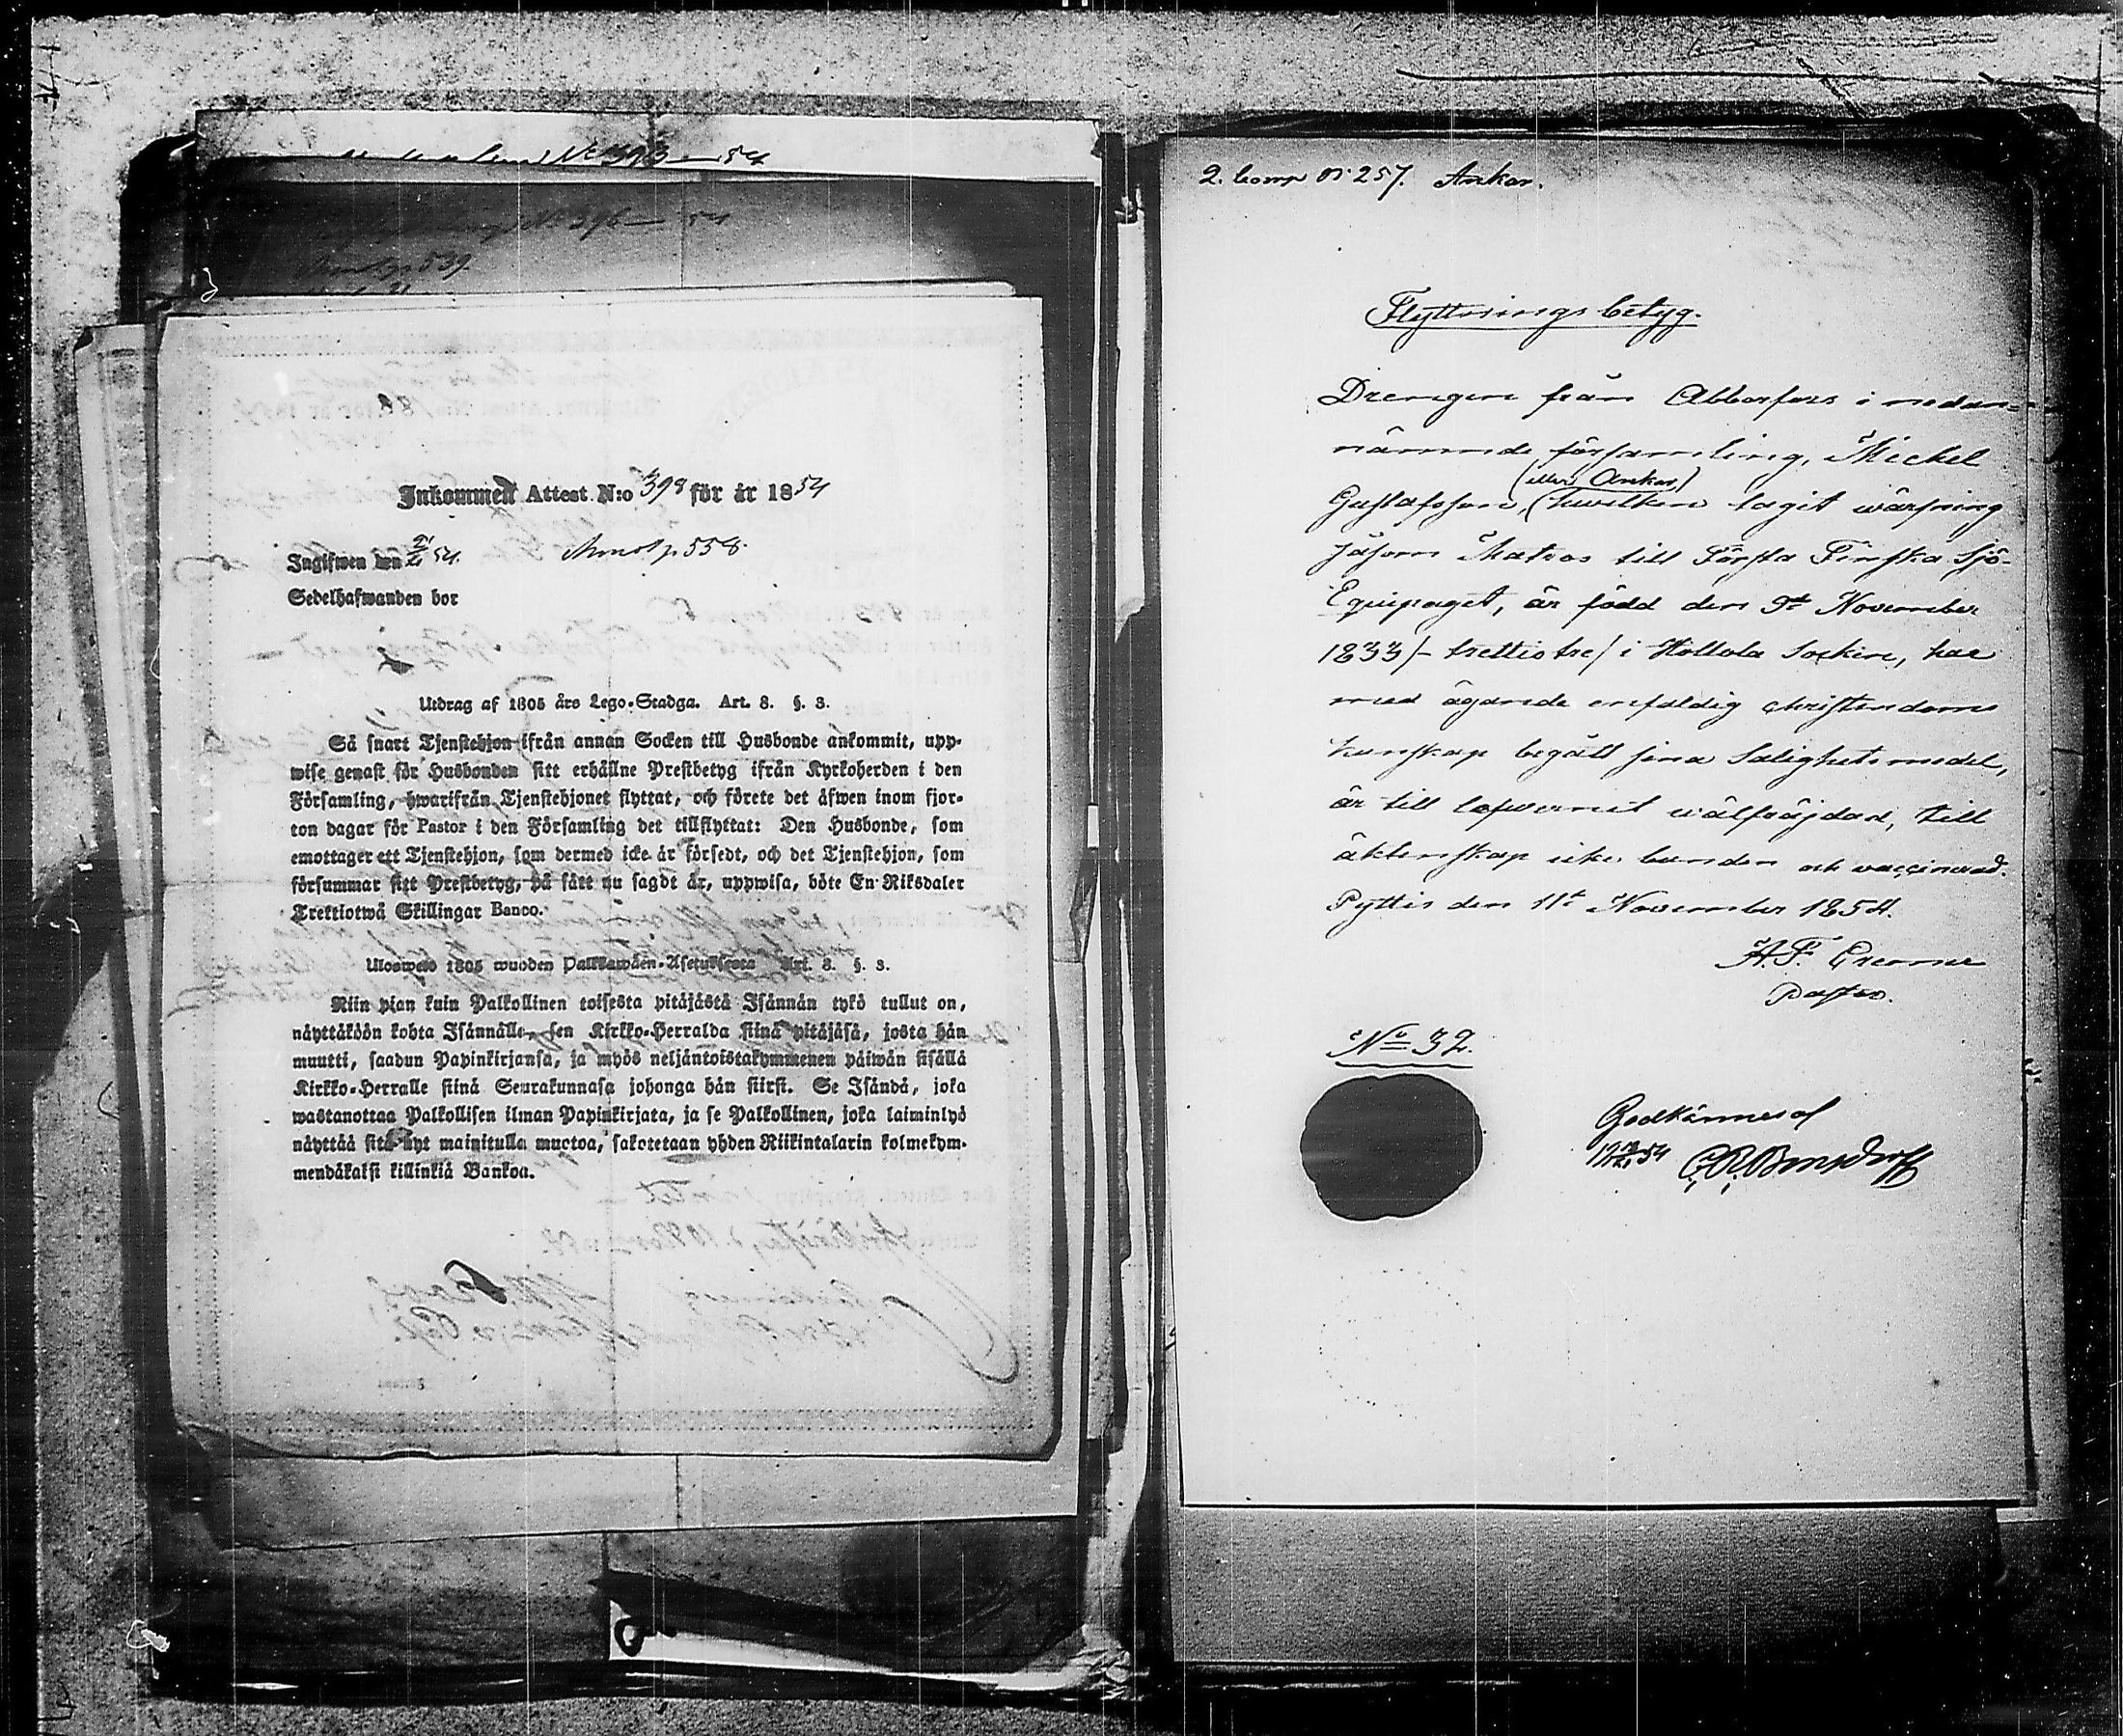 N:o 393 — 54
N:o 396 — 54
p 539.
Inkommen Attest N:o 398 för år 1854
Ingifwen den 54. p. 558.
Sedelhafwanden bor
Utdrag af 1805 års Lego-Stadga. Art. 8. §. 3.
Så snart Tjenstehjon ifrån annan Socken till Husbonde ankommit, upp-
wise genast för Husbonden sitt erhållne Prestbetyg ifrån Kyrkoherden i den
Församling, hwarifrån Tjenstehjonet flyttat, och förete det äfwen inom fjor-
ton dagar för Pastor i den Församling det tillflyttat: Den Husbonde, som
emottager ett Tjenstehjon, som dermed icke är försedt, och det Tjenstehjon, som
försummar sitt Prestbetyg, på sätt nu sagdt är, uppwisa, böte En Riksdaler
Trettiotwå Skillingar Banco.
Ulosweto 1805 wuoden Palkkawäen-Asetuksesta Art. 8. §. 3.
Niin pian kuin Palkollinen toisesta pitäjästä Isännän tykö tullut on,
näyttäköön kohta Isännälle, sen Kirkko-Herralda siinä pitäjäsä, josta hän
muutti, saadun Papinkirjansa, ja myös neljäntoistakymmenen päiwän sisällä
Kirkko-Herralle siinä Seurakunnasa johonga hän siirsi. Se Isändä, joka
wastanottaa Palkollisen ilman Papinkirjata, ja se Palkollinen, joka laiminlyö
näyttää sitä nyt mainitulla muotoa, sakotetaan yhden Riikintalarin kolmekym-
mendäkaksi killinkiä Bankoa.
2. Comp N:o 257. Ankar.
Flyttningsbetyg.
Drengen från Abborfors i nedan=
nämnde församling, Mickel
(eller Ankar)
Gustafsson, (hwilken tagit wärfning
såsom Matros till Första Finska Sjö-
Equipaget, är född den 9de November
1833 /- trettiotre/ i Hollola Socken, har
med ägande enfaldig christendoms
kunskap begått sina Salighetsmedel,
är till lefwernet wälfräjdad, till
äktenskap icke bunden och vaccinerad.
Pyttis den 11te November 1854.
A. F.
Pastor.
No 32.
Godkännes af
54